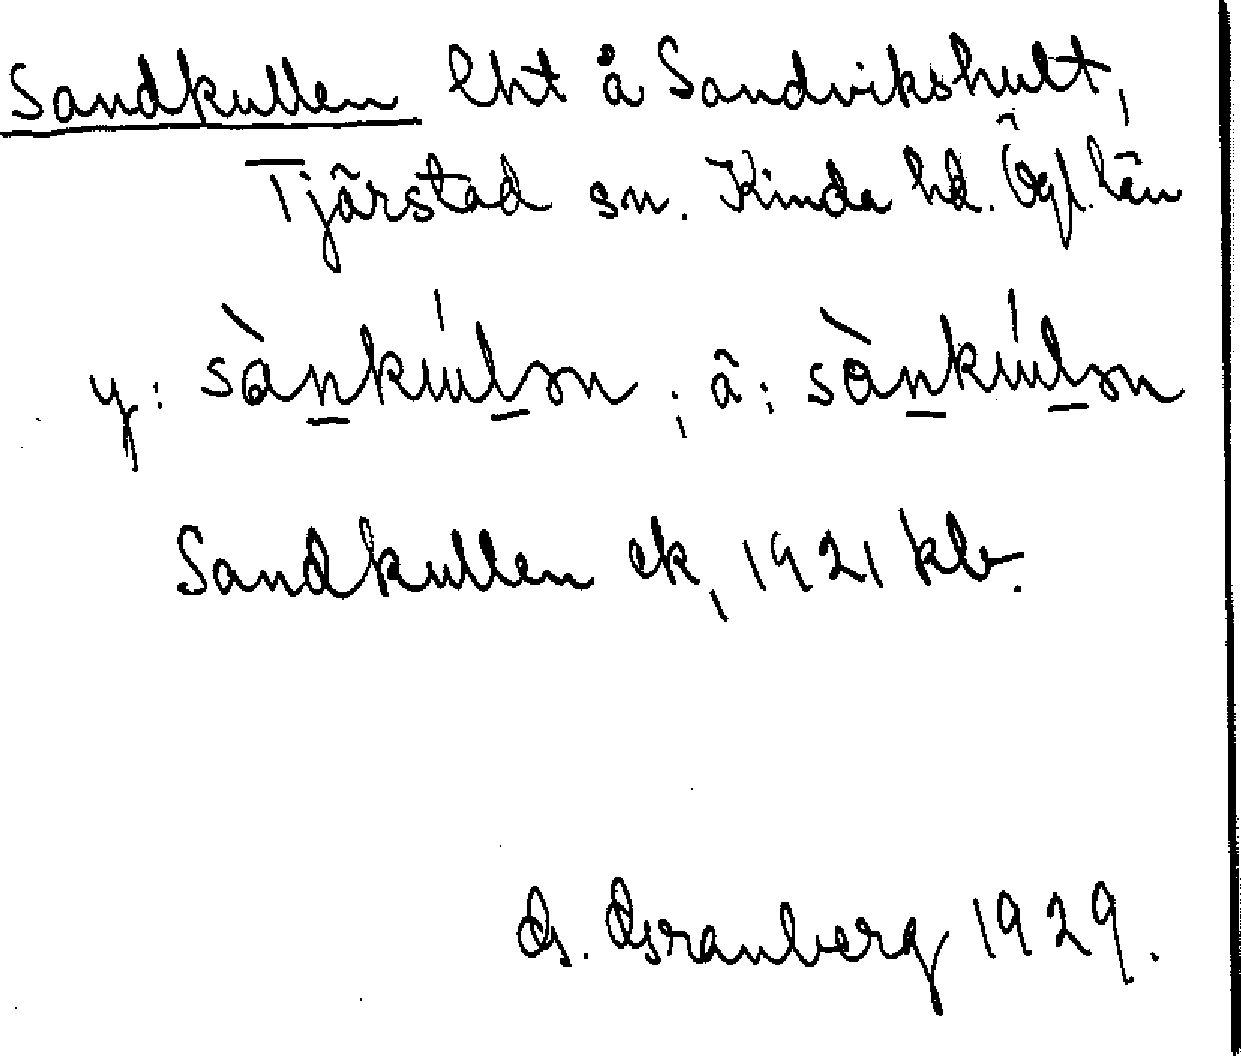 Sandkullen lht å Sandvikshult,
Tjärstad sn. Kinda hd. Ögl. län
y: sànkúlən ; ä: sònkúlən
Sandkullen ek, 1921 klr.
G. Granberg 1929.